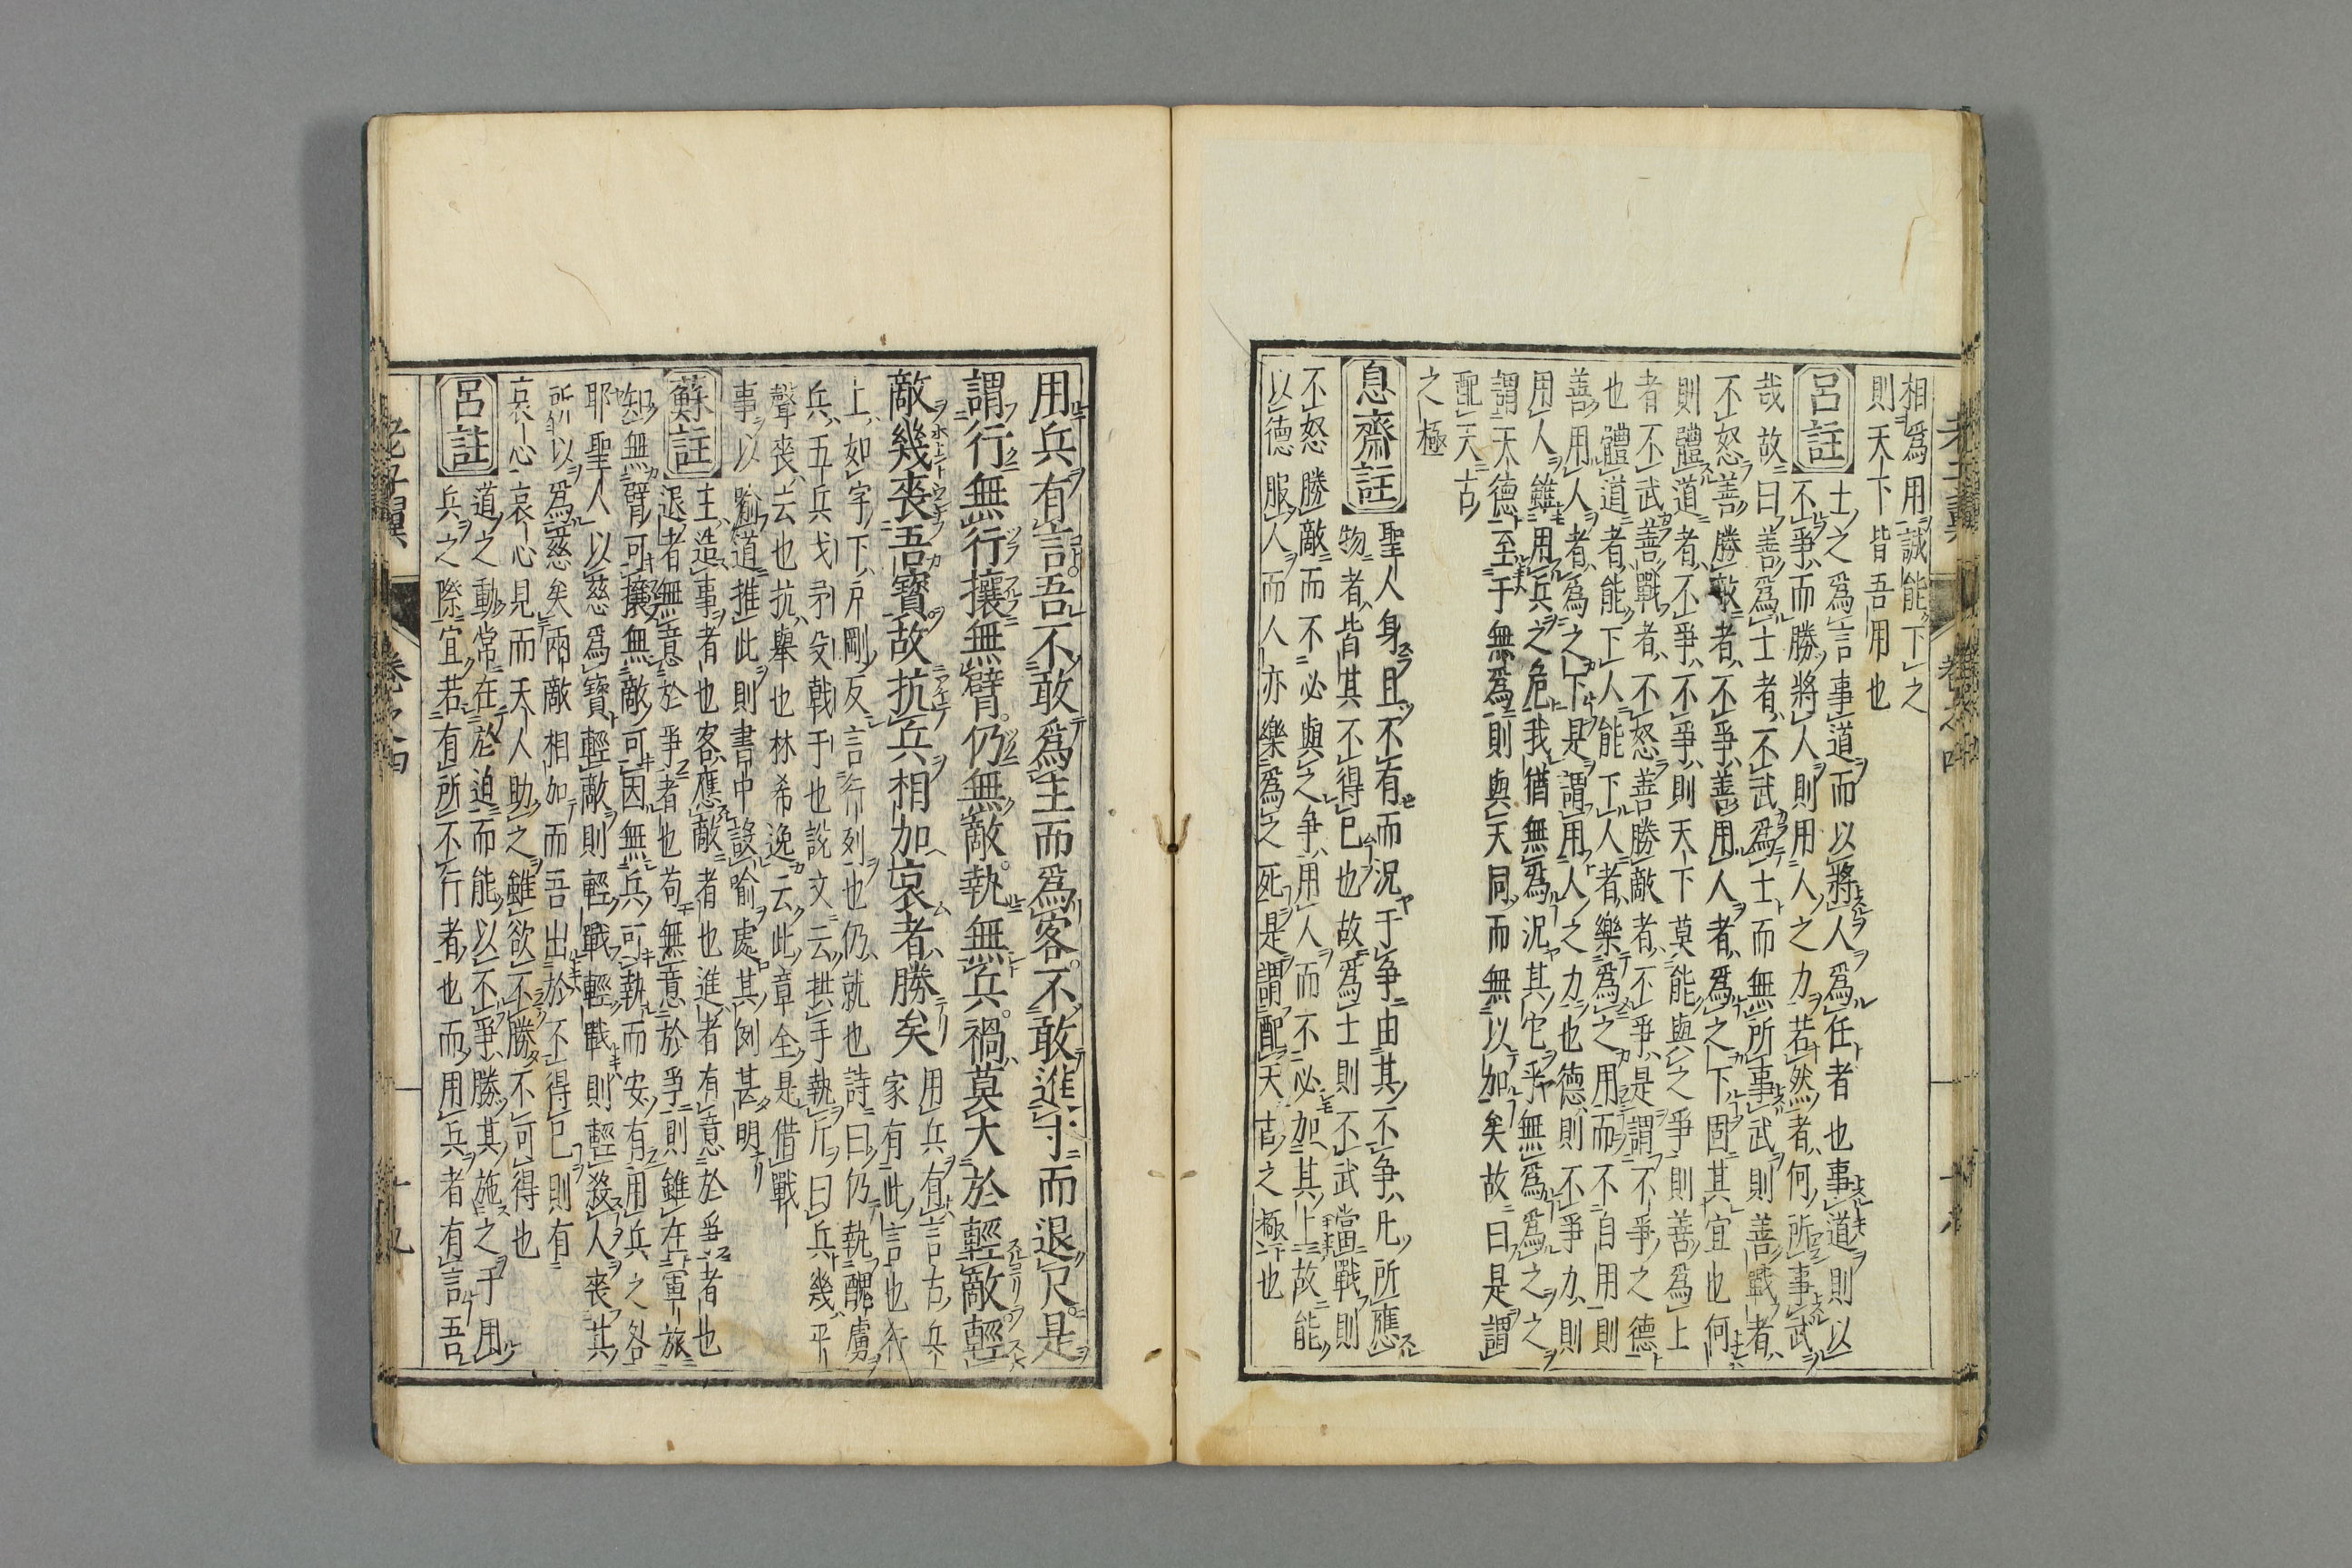 相爲用誠能下之
則天下皆吾用也
呂註
士之爲言事道而以將人爲任者也事道則以
不爭而勝將人則用人之力若然者何所事武
哉故曰善爲士者不武爲士而無所事武則善戰者
不怒善勝敵者不爭善用人者爲之下固其宜也何
則體道者不爭不爭則天下莫能與之爭則善爲上
者不武善戰者不怒善勝敵者不爭是謂不爭之德
也體道者能下人能下人者樂爲之用而不自用則
善用人者爲之下是謂用人之力也德則不爭力則
用人雖用兵之危我猶無爲況其它乎無爲爲之之
謂天德至于無爲則與天同而無以加矣故曰是謂
配天古
之極
息齋註
聖人身且不有而況于爭由其不爭凡所應
物者皆其不得已也故爲士則不武當戰則
不怒勝敵而不必與之爭用人而不必加其上故能
以德服人而人亦樂爲之死是謂配天古之極也
用兵有言吾不敢爲主而爲客不敢進寸而退尺是
謂行無行攘無臂仍無敵執無兵禍莫大於輕敵輕
敵幾喪吾寶故抗兵相加哀者勝矣
用兵有言古兵
家有此言也行
上如字下戶剛反言行列也仍就也詩曰仍執醜虜
兵五兵戈矛殳戟干也說文云拱手執斤曰兵幾平
聲喪去也抗舉也林希逸云此章全是借戰
事以喻道推此則書中設喻處其例甚明
蘇註
主造事者也客應敵者也進者有意於爭者也
退者無意於爭者也苟無意於爭則雖在軍旅
如無臂可攘無敵可因無兵可執而安有用兵之咎
耶聖人以慈爲寶輕敵則輕戰輕戰則輕殺人喪其
所以爲慈矣兩敵相加而吾出於不得已則有
哀心哀心見而天人助之雖欲不勝不可得也
呂註
道之動常在於迫而能以不爭勝其施之于用
兵之際宜若有所不行者也而用兵者有言吾
老子翼
卷之四